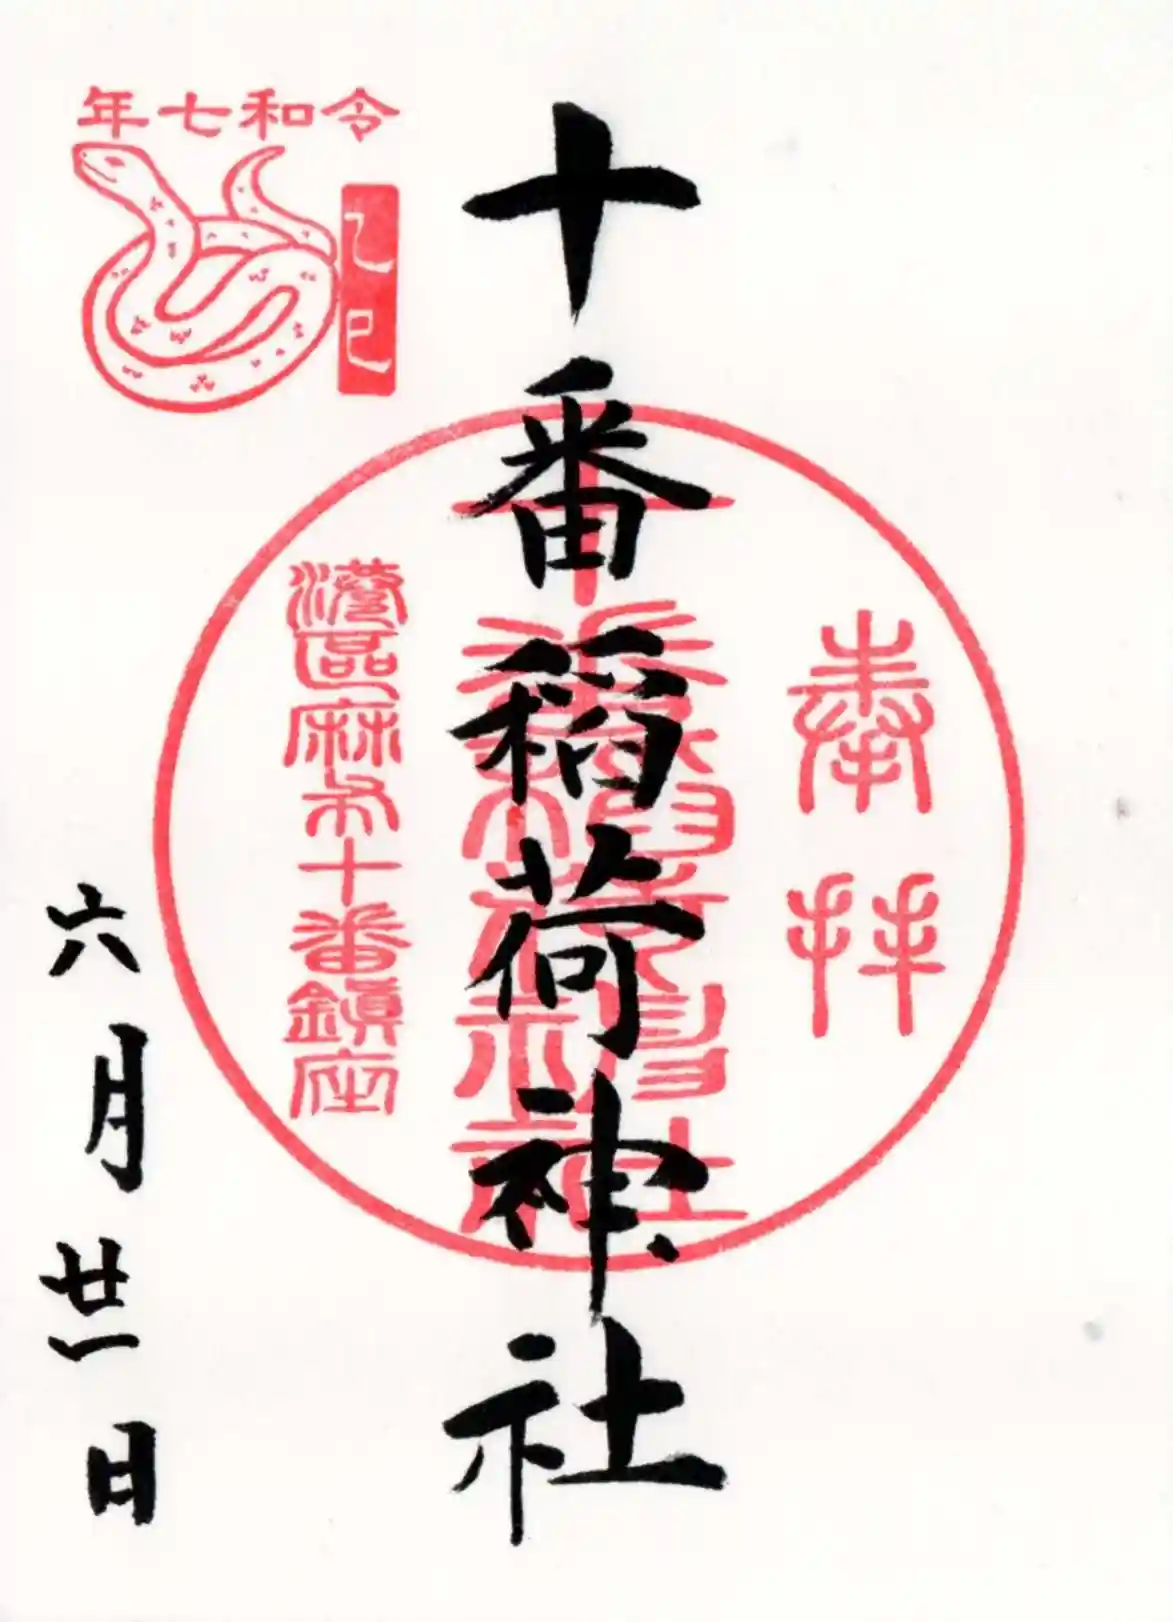 令和七年
乙巳
奉拝
十番稲荷神社
十番稲荷神社
港區麻布十番鎮座
六月廿一日